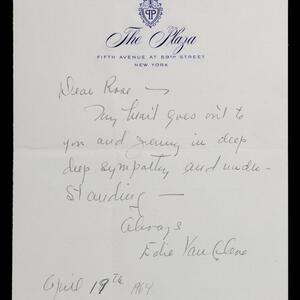 The Plaza
FIFTH AVENUE AT 59TH STREET
NEW YORK
Dear Rose —
My heart goes out to
you and Jenny in deep
deep sympathy and under-
standing —
Always
Edie Van
April 19TH 1964